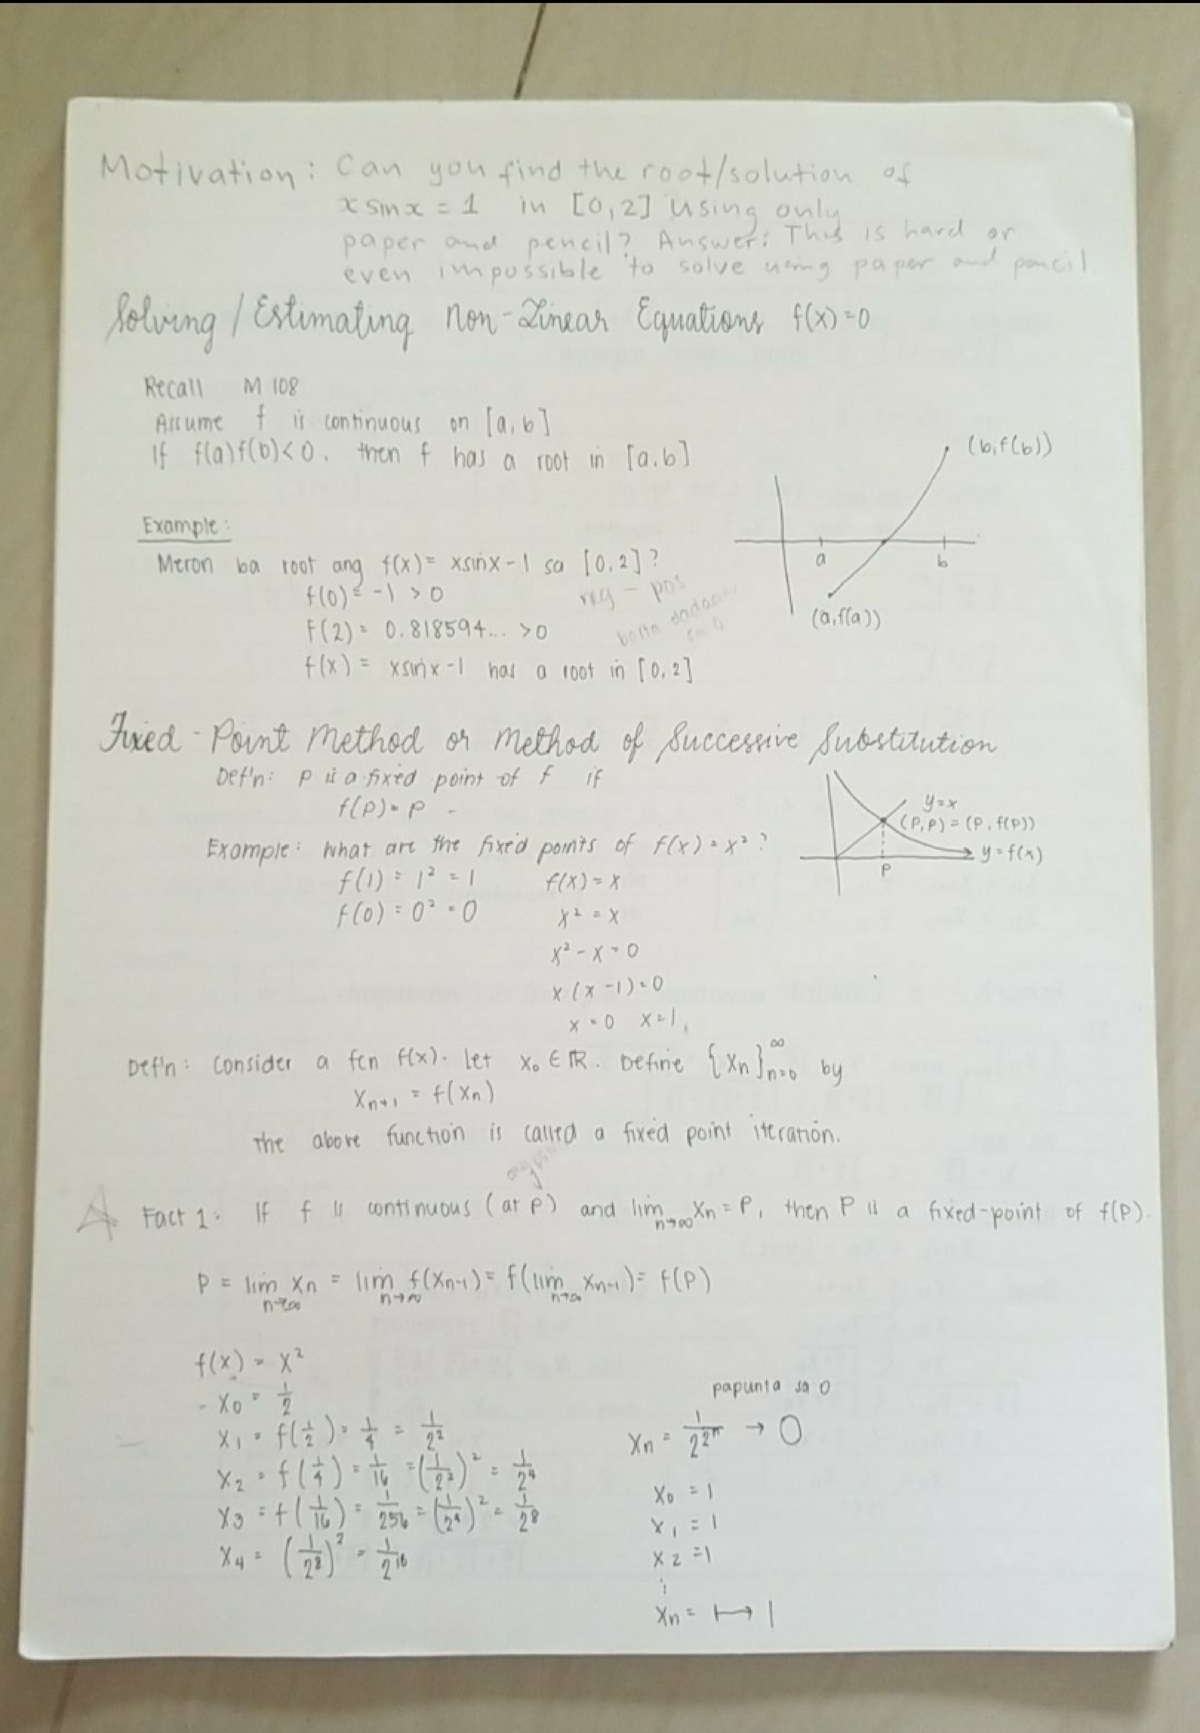 Motivation: Can you find the root/solution of
x sinx = 1 in [0,2] using only
paper and pencil? Answer: This is hard or
even impossible to solve using paper and pencil.
Solving / Estimating Non-Linear Equations f(x)=0
Recall M 108
Assume f is continuous on [a,b]
If f(a)f(b)<0, then f has a root in [a,b]
(b,f(b))
a
b
(a,f(a))
Example:
Meron ba root ang f(x)= xsinx-1 sa [0,2]?
f(0)= -1 > 0
neg - pos
f(2)= 0.818594... >0
sa 0
f(x) = xsinx-1 has a root in [0,2]
Fixed-Point Method or Method of Successive Substitution
Def'n: p is a fixed point of f if
f(p)=p
y=x
(P,P)=(P,f(P))
y=f(x)
P
Example: What are the fixed points of f(x)=x²?
f(1) = 1² = 1 f(x)=x
f(0) = 0² = 0 x² = x
x² - x = 0
x(x-1)=0
x=0 x=1
Def'n: Consider a fcn f(x). Let x₀ ∈ ℝ. Define {xn}∞n=0 by
xn+1 = f(xn)
The above function is called a fixed point iteration.
Fact 1: If f is continuous (at p) and lim n→∞ xn = P, then P is a fixed-point of f(P).
P = lim n→∞ xn = lim n→∞ f(xn-1) = f(lim n→∞ xn-1) = f(P)
f(x) = x²
- x₀ = 1/2
x₁ = f(1/2) = 1/4 = 1/2²
x₂ = f(1/4) = 1/16 = (1/2²)² = 1/2⁴
x₃ = f(1/16) = 1/256 = (1/2⁴)² = 1/2⁸
x₄ = (1/2⁸)² = 1/2¹⁶
papunta sa 0
xn = 1/2^2^n → 0
x₀ = 1
x₁ = 1
x₂ = 1
⋮
xn = 1 → 1